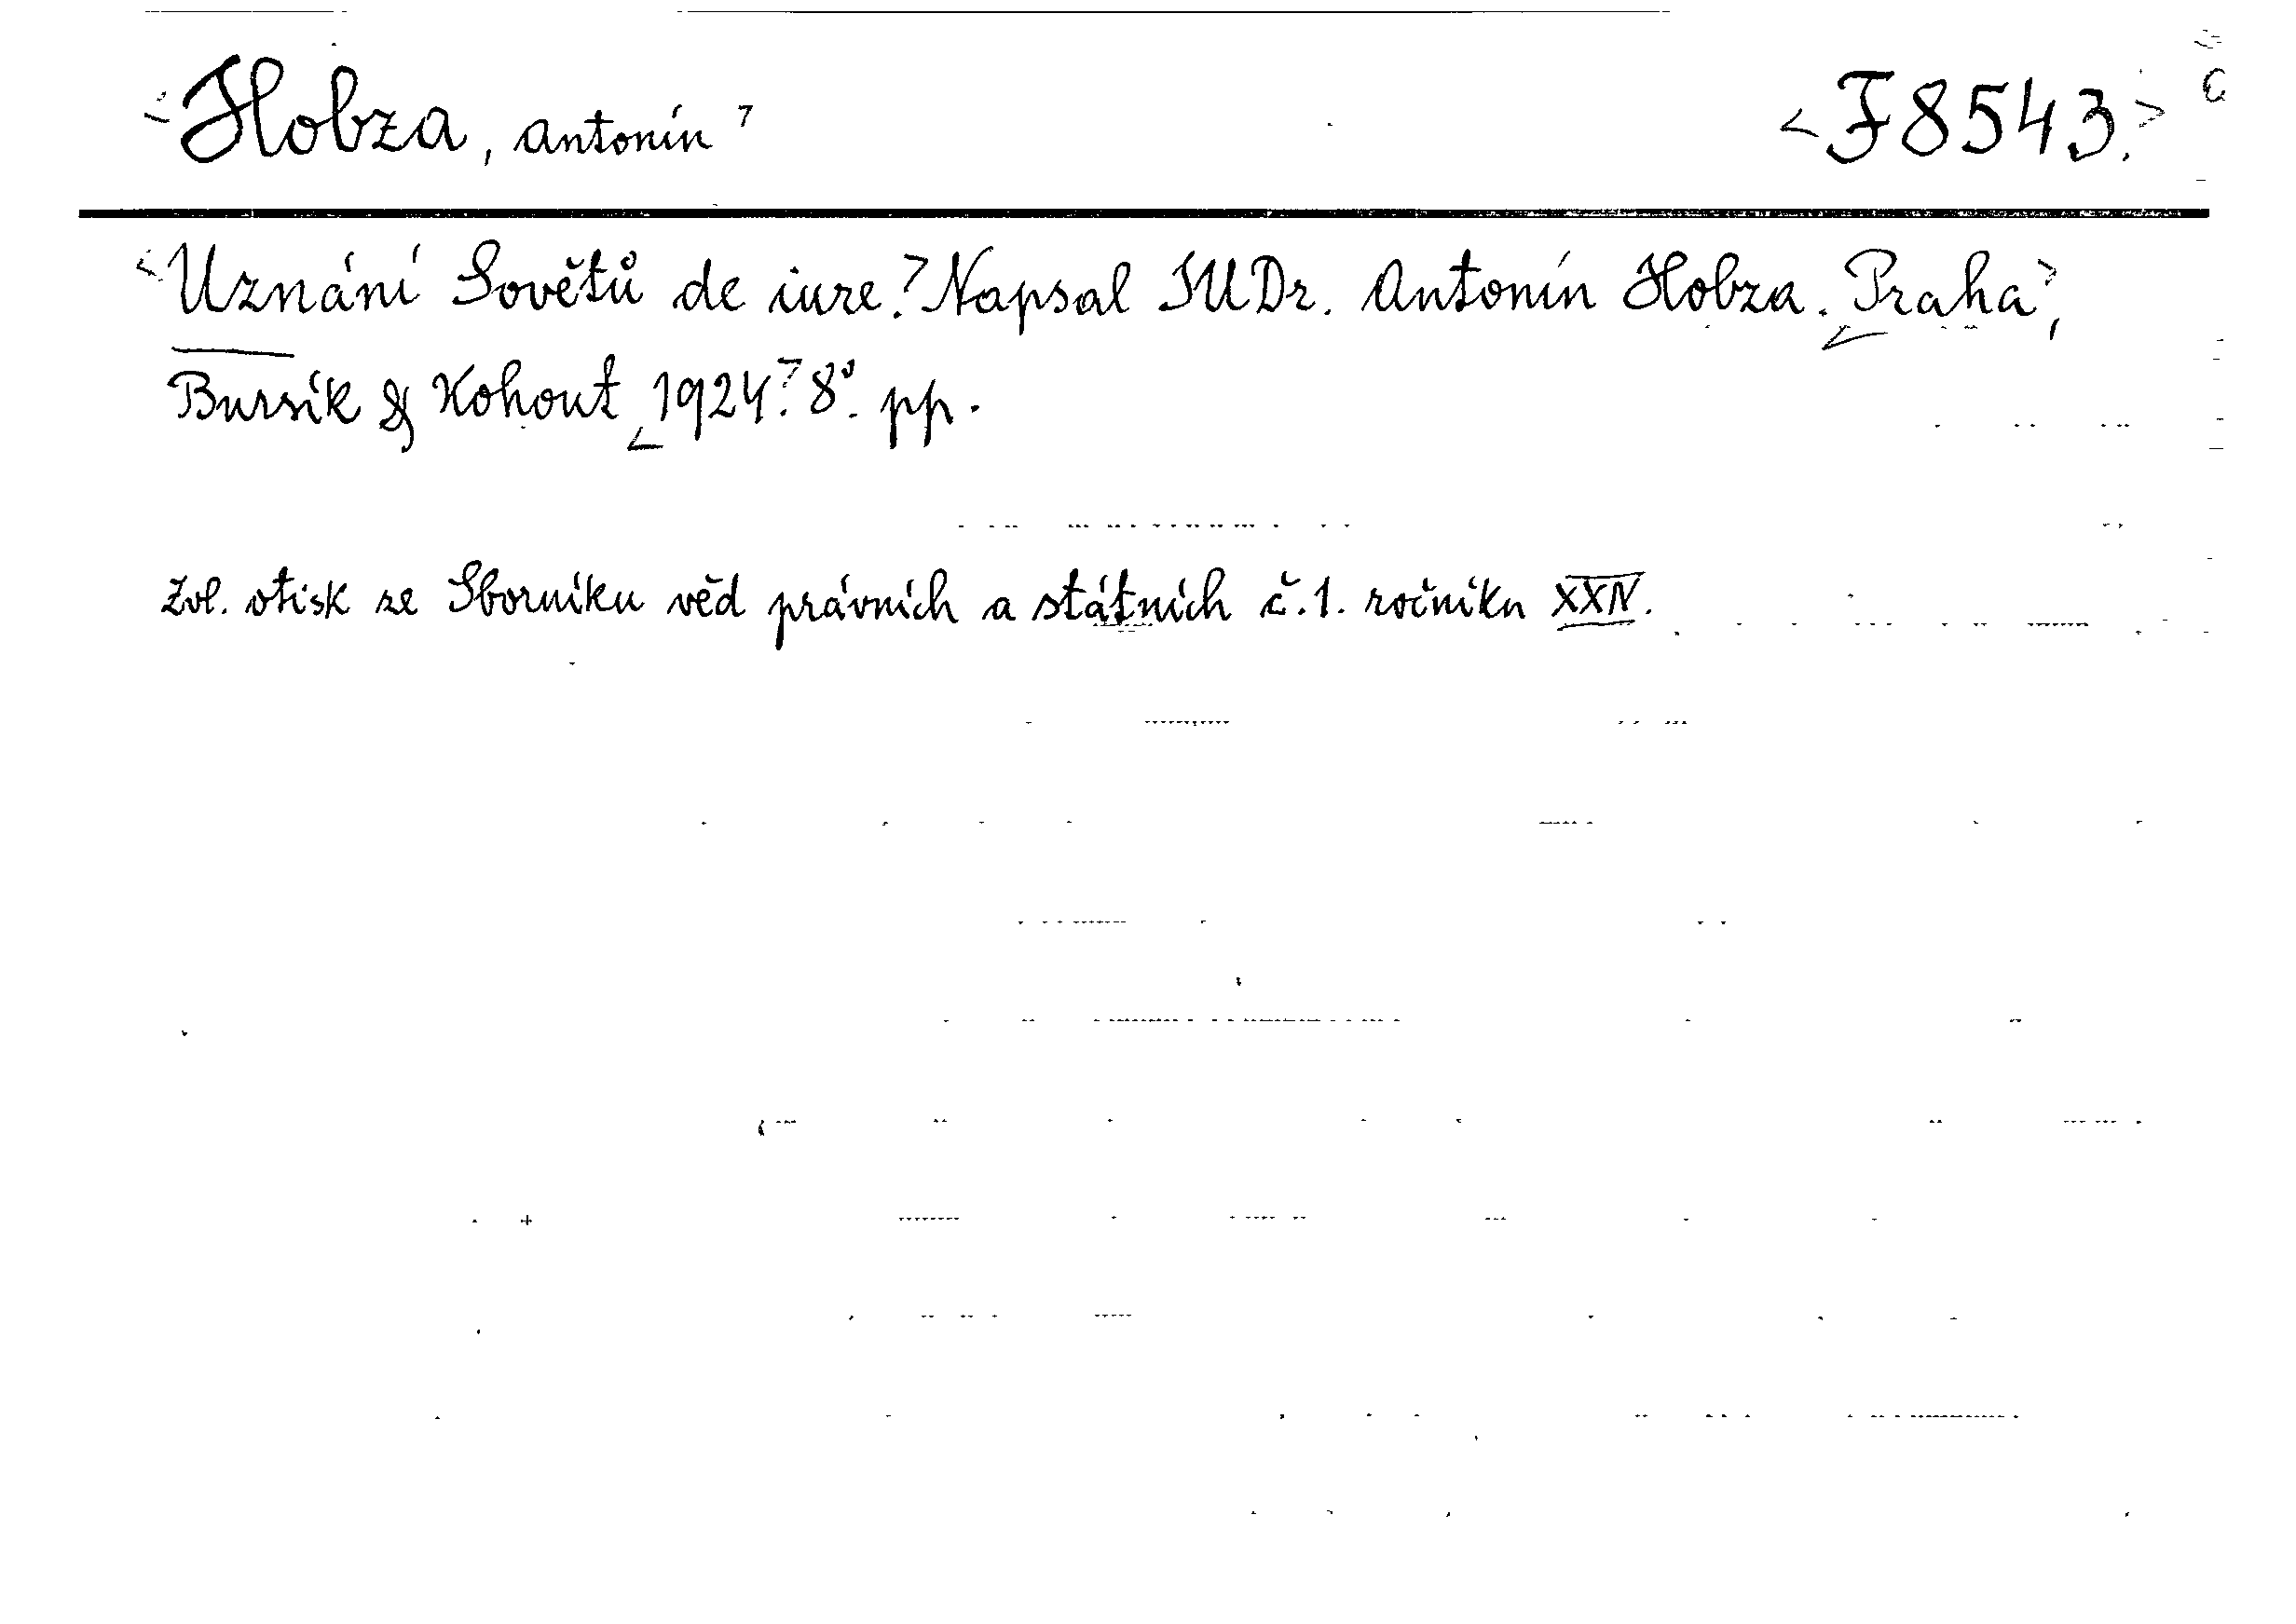 <Hobza, Antonín> <F 8543.>
<Uznání Sovětů de iure.> Napsal JUDr. Antonín Hobza. <Praha>,
Bursík & Kohout <1924.> 8°. pp.
Zvl. otisk ze Sborníku věd právních a státních č. 1. ročníku XXIV.